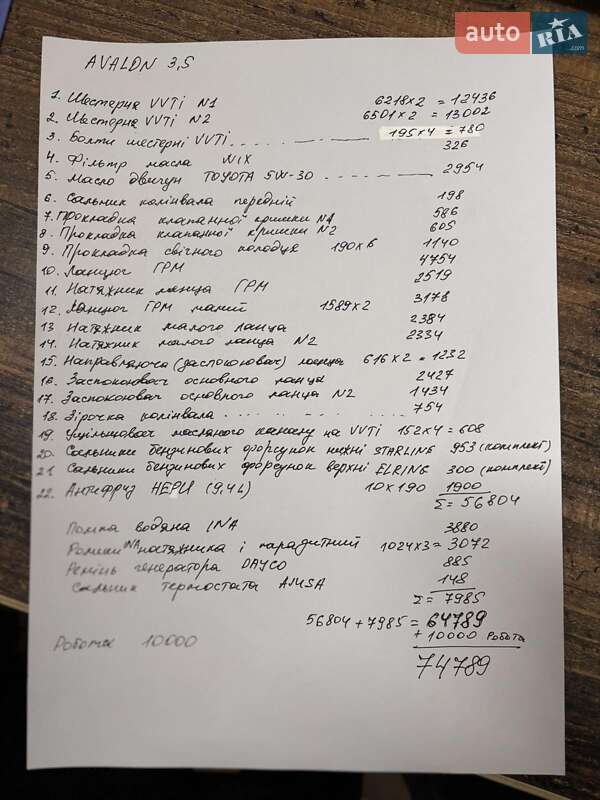 auto RIA.com
AVALON 3,5
1. Шестерня VVTi N1 6218x2 = 12436
2. Шестерня VVTi N2 6501x2 = 13002
3. Болти шестерні VVTi 195x4 = 780
4. Фільтр масла NIX 326
5. Масло двигун TOYOTA 5W-30 2954
6. Сальник колінвала передній 198
7. Прокладка клапанної кришки N1 586
8. Прокладка клапанної кришки N2 605
9. Прокладка свічного колодця 190x6 1140
10. Ланцюг ГРМ 4754
11. Натяжник ланца ГРМ 2519
12. Ланцюг ГРМ малий 1589x2 3178
13. Натяжник малого ланца 2384
14. Натяжник малого ланца N2 2334
15. Направляюча (заспокоювач) ланца 616x2 = 1232
16. Заспокоювач основного ланца 2427
17. Заспокоювач основного ланца N2 1434
18. Зірочка колінвала 754
19. Ущільнювач масляного каналу на VVTi 152x4 = 608
20. Сальники бензинових форсунок нижні STARLINE 953 (комплект)
21. Сальники бензинових форсунок верхні ELRING 300 (комплект)
22. Антифриз HEPU (9,4L) 10x190 1900
Σ = 56804
Помпа водяна INA 3880
Ролики INA натяжника і парадитний 1024x3 = 3072
Ремінь генератора DAYCO 885
Сальник термостата AJUSA 148
Σ = 7985
56804 + 7985 = 64789
+ 10000 Робота
Робота 10000
74789